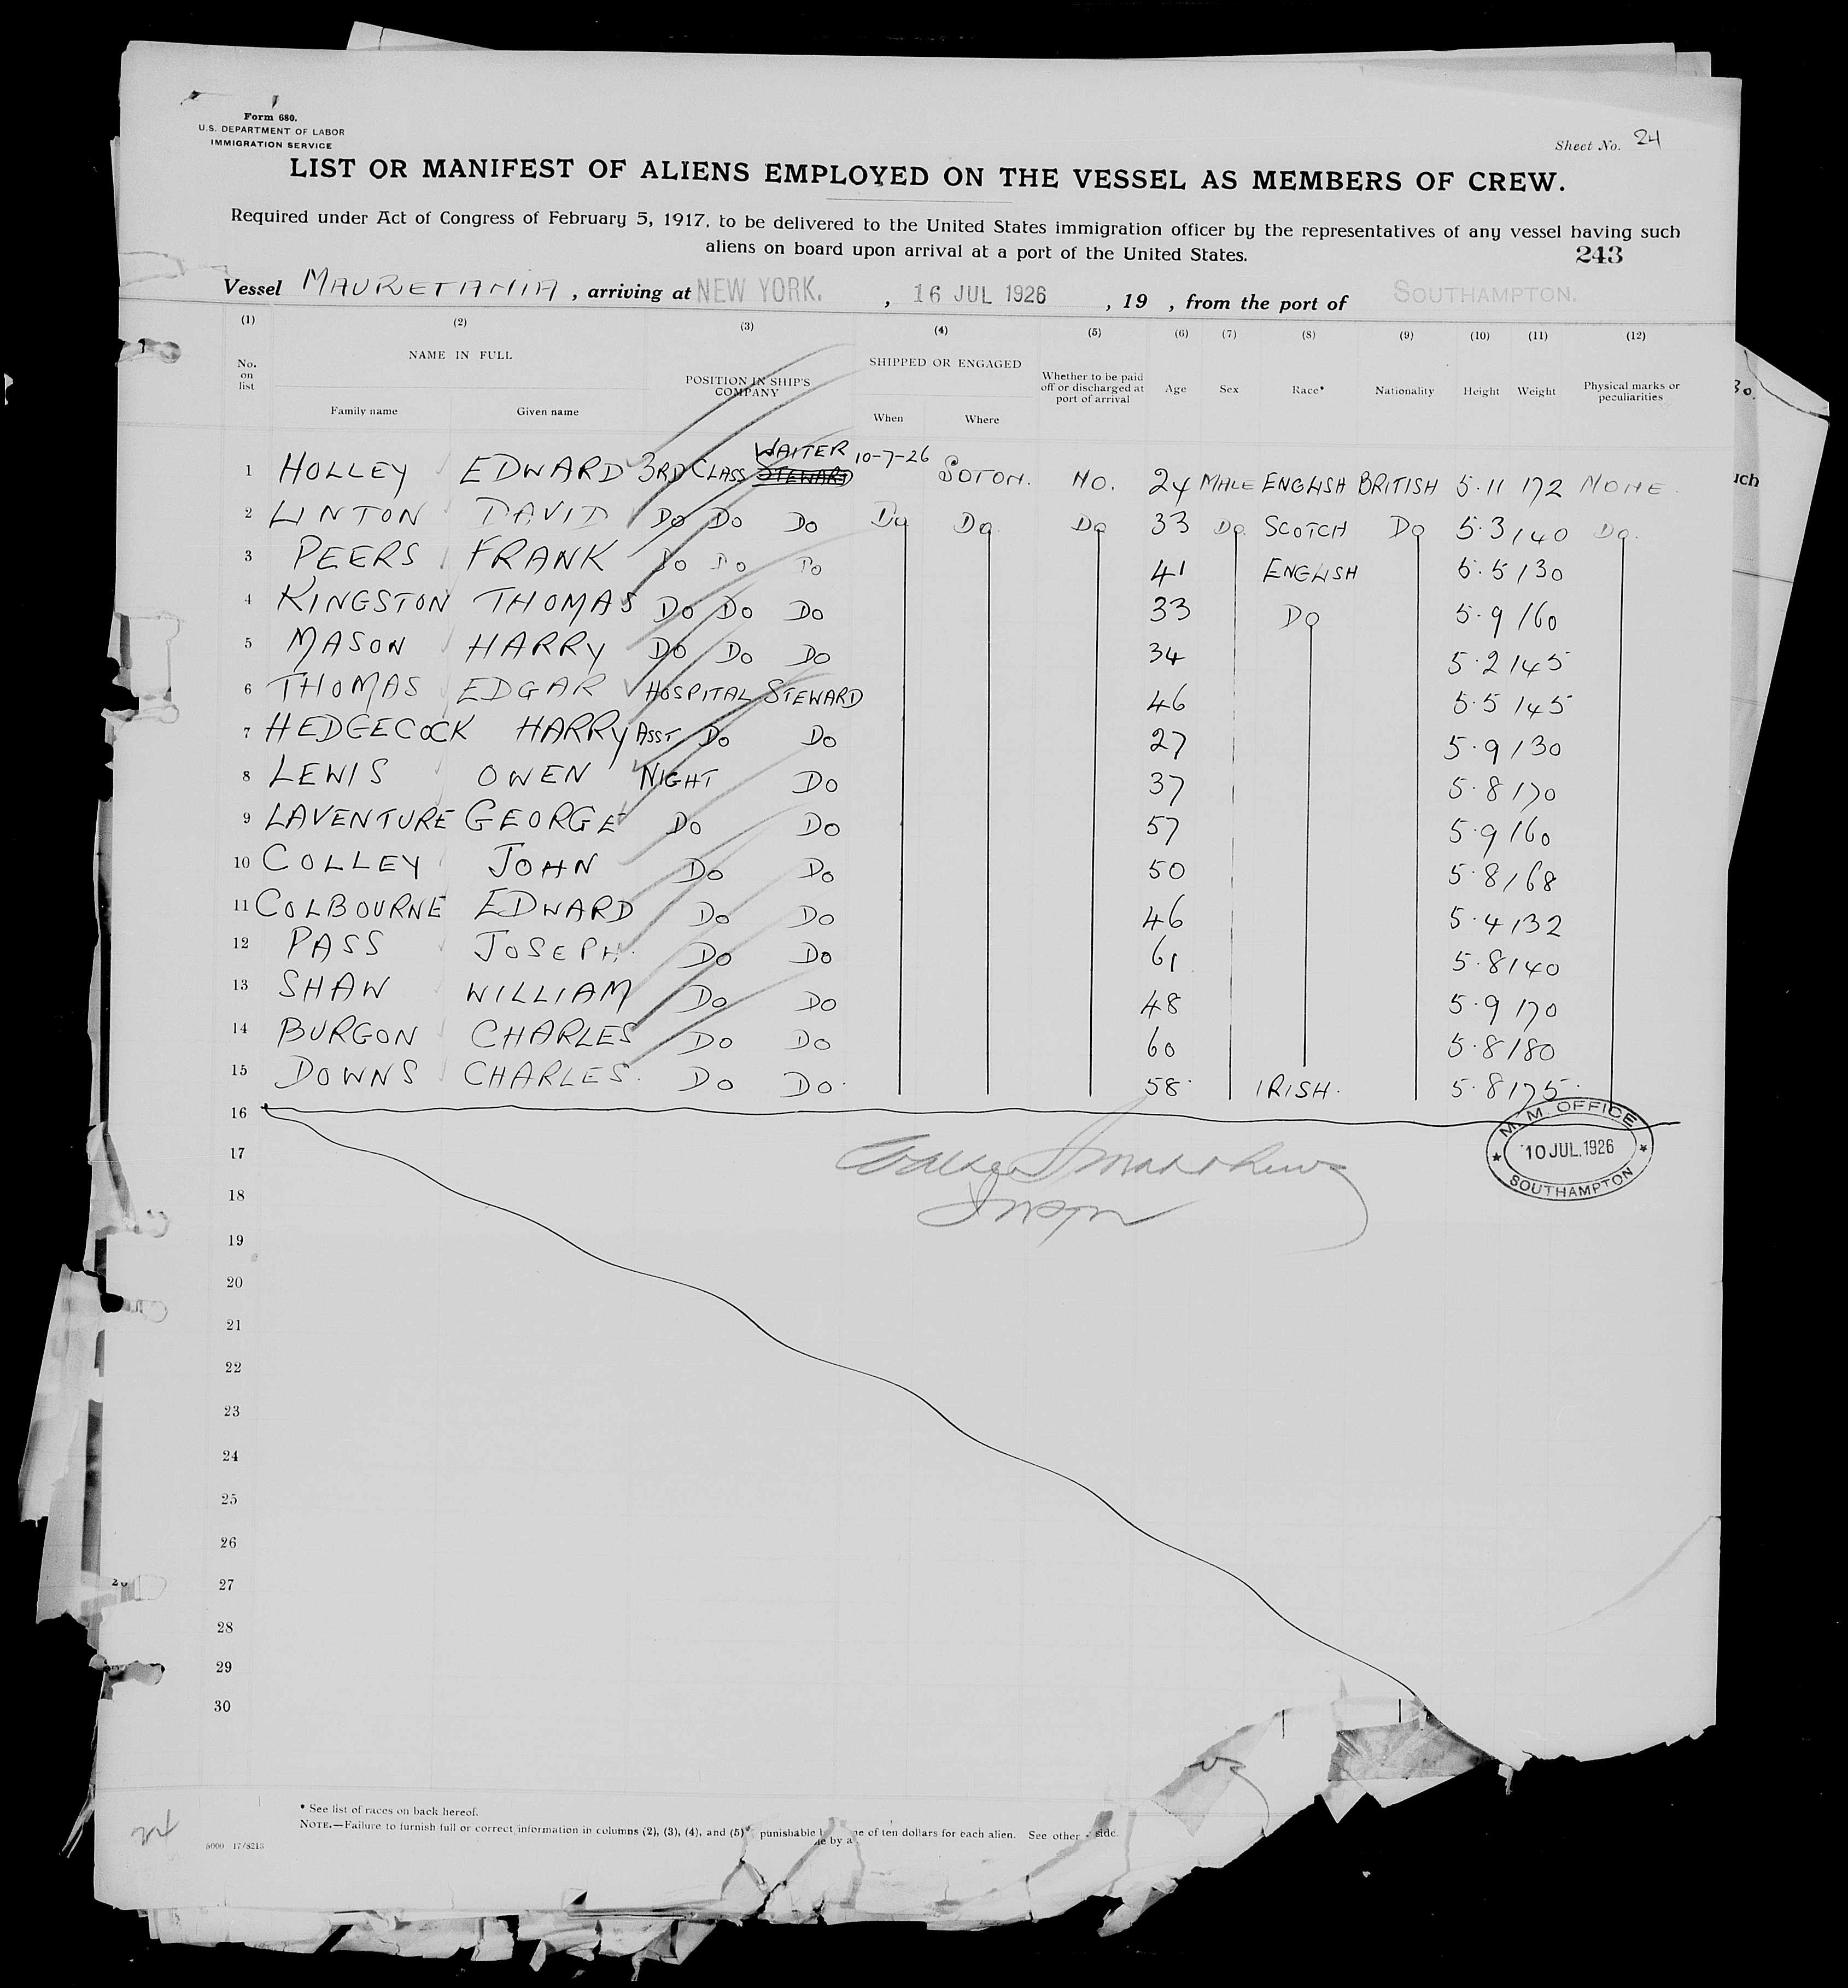 Form 680.
U.S. DEPARTMENT OF LABOR
IMMIGRATION SERVICE
Sheet No. 24
LIST OR MANIFEST OF ALIENS EMPLOYED ON THE VESSEL AS MEMBERS OF CREW.
Required under Act of Congress of February 5, 1917, to be delivered to the United States immigration officer by the representatives of any vessel having such
aliens on board upon arrival at a port of the United States.
243
Vessel MAURETANIA, arriving at NEW YORK. , 16 JUL 1926 , 19 , from the port of SOUTHAMPTON.
(1) (2) (3) (4) (5) (6) (7) (8) (9) (10) (11) (12)
No. on list NAME IN FULL Family name Given name POSITION IN SHIP'S COMPANY SHIPPED OR ENGAGED When Where Whether to be paid off or discharged at port of arrival Age Sex Race* Nationality Height Weight Physical marks or peculiarities
1 HOLLEY EDWARD 3RD CLASS STEWARD WAITER 10-7-26 SOTON. NO. 24 MALE ENGLISH BRITISH 5.11 172 NONE.
2 LINTON DAVID DO DO DO DO DO. DO 33 DO SCOTCH DO 5.3 140 DO.
3 PEERS FRANK DO DO DO 41 ENGLISH 5.5 130
4 KINGSTON THOMAS DO DO DO 33 DO 5.9 160
5 MASON HARRY DO DO DO 34 5.2 145
6 THOMAS EDGAR HOSPITAL STEWARD 46 5.5 145
7 HEDGECOCK HARRY ASST. DO DO 27 5.9 130
8 LEWIS OWEN NIGHT DO 37 5.8 170
9 LAVENTURE GEORGE DO DO 57 5.9 160
10 COLLEY JOHN DO DO 50 5.8 168
11 COLBOURNE EDWARD DO DO 46 5.4 132
12 PASS JOSEPH. DO DO 61 5.8 140
13 SHAW WILLIAM DO DO 48 5.9 170
14 BURGON CHARLES DO DO 60 5.8 180
15 DOWNS CHARLES. DO DO. 58. IRISH. 5.8 175.
16
M.M. OFFICE
10 JUL. 1926
SOUTHAMPTON
17
18
19
20
21
22
23
24
25
26
27
28
29
30
* See list of races on back hereof.
NOTE.—Failure to furnish full or correct information in columns (2), (3), (4), and (5) punishable of ten dollars for each alien. See other side.
by a
24
5000 17/8213